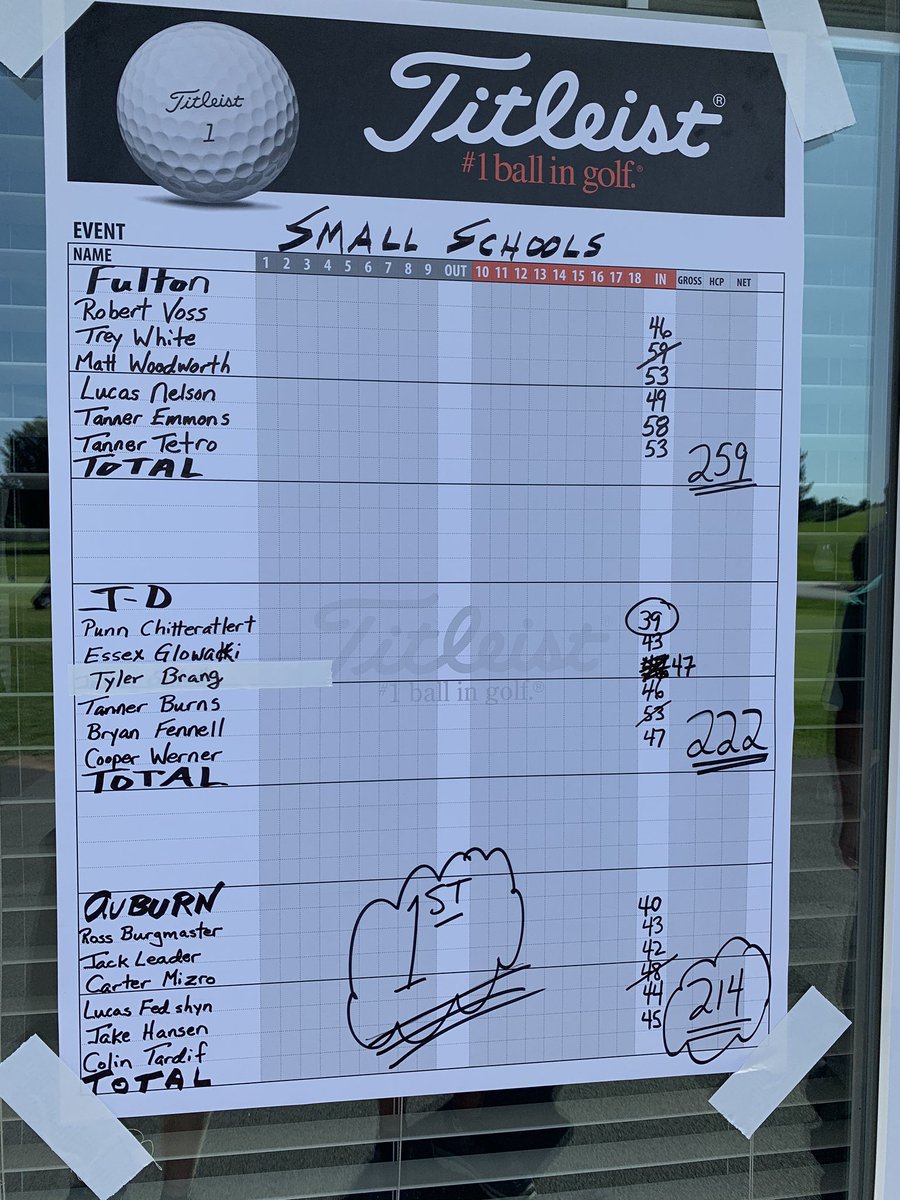 Titleist
1
Titleist®
#1 ball in golf.®
EVENT SMALL SCHOOLS
NAME 1 2 3 4 5 6 7 8 9 OUT 10 11 12 13 14 15 16 17 18 IN GROSS HCP NET
Fulton
Robert Voss 46
Trey White 59
Matt Woodworth 53
Lucas Nelson 49
Tanner Emmons 58
Tanner Tetro 53
TOTAL 259
J-D
Punn Chitteratlert 39
Essex Glowacki 43
Tyler Brang 47
Tanner Burns 46
Bryan Fennell 53
Cooper Werner 47
TOTAL 222
Titleist
#1 ball in golf.®
AUBURN
Ross Burgmaster 40
Jack Leader 43
Carter Mizro 42
Lucas Fedshyn 48
Jake Hansen 44
Colin Tardif 45
TOTAL 214
1ST